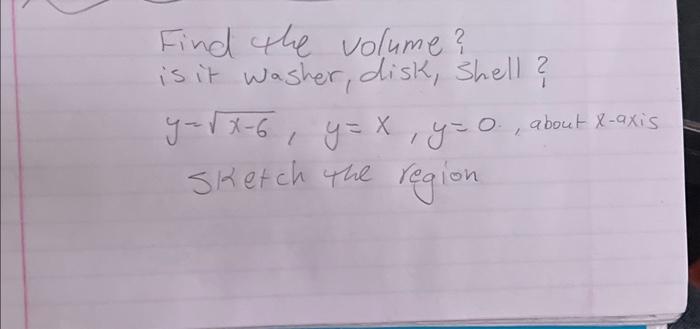 Find the volume?
is it washer, disk, shell?
y=√x-6, y=x, y=0., about x-axis
Sketch the region